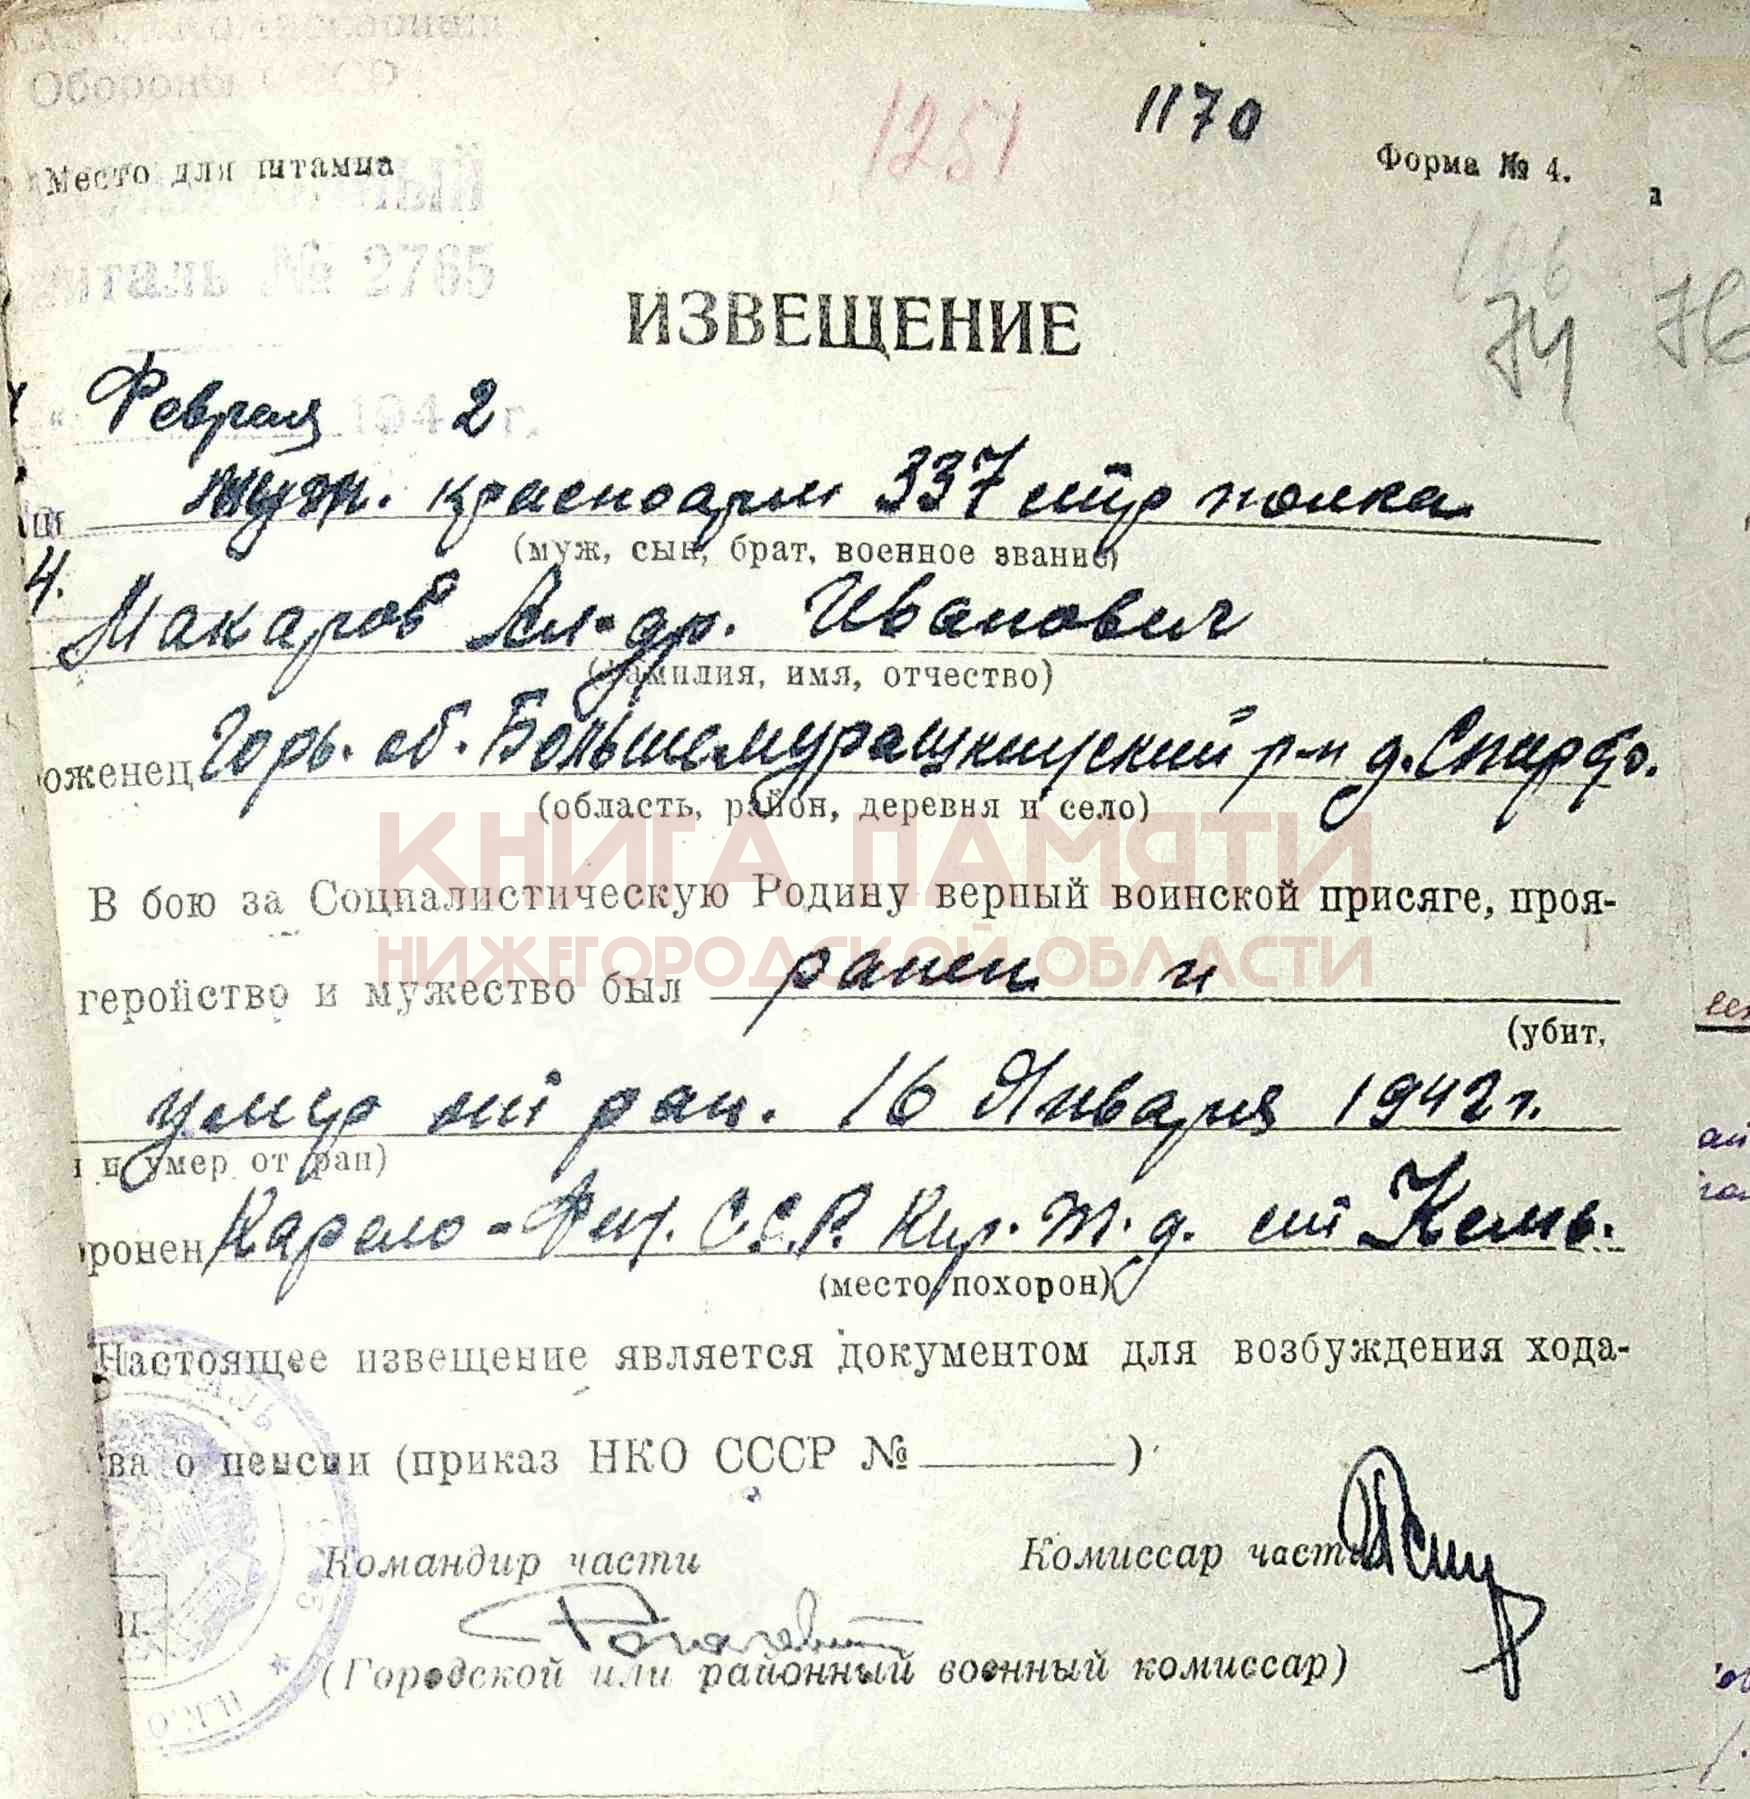 Обороны
1251 1170
Место для штампа Форма № 4.
№ 2765
166
ИЗВЕЩЕНИЕ 74 76
« Февраля 1942 г.
муж. красноарм 337 стр полка
(муж, сын, брат, военное звание)
4.
Макаров Ал-др. Иванович
(фамилия, имя, отчество)
оженец Горь. об. Большемурашкинский р-н д.
(область, район, деревня и село)
КНИГА ПАМЯТИ
В бою за Социалистическую Родину верный воинской присяге, проя-
НИЖЕГОРОДСКОЙ ОБЛАСТИ
геройство и мужество был ранен и
(убит,
умер от ран. 16 Января 1942 г.
и умер от ран)
ронен Карело-Фин. С.С.Р. Кир. ж. д. ст Кемь.
(место похорон)
Настоящее извещение является документом для возбуждения хода-
ва о пенсии (приказ НКО СССР № )
Командир части Комиссар части
(Городской или районный военный комиссар)